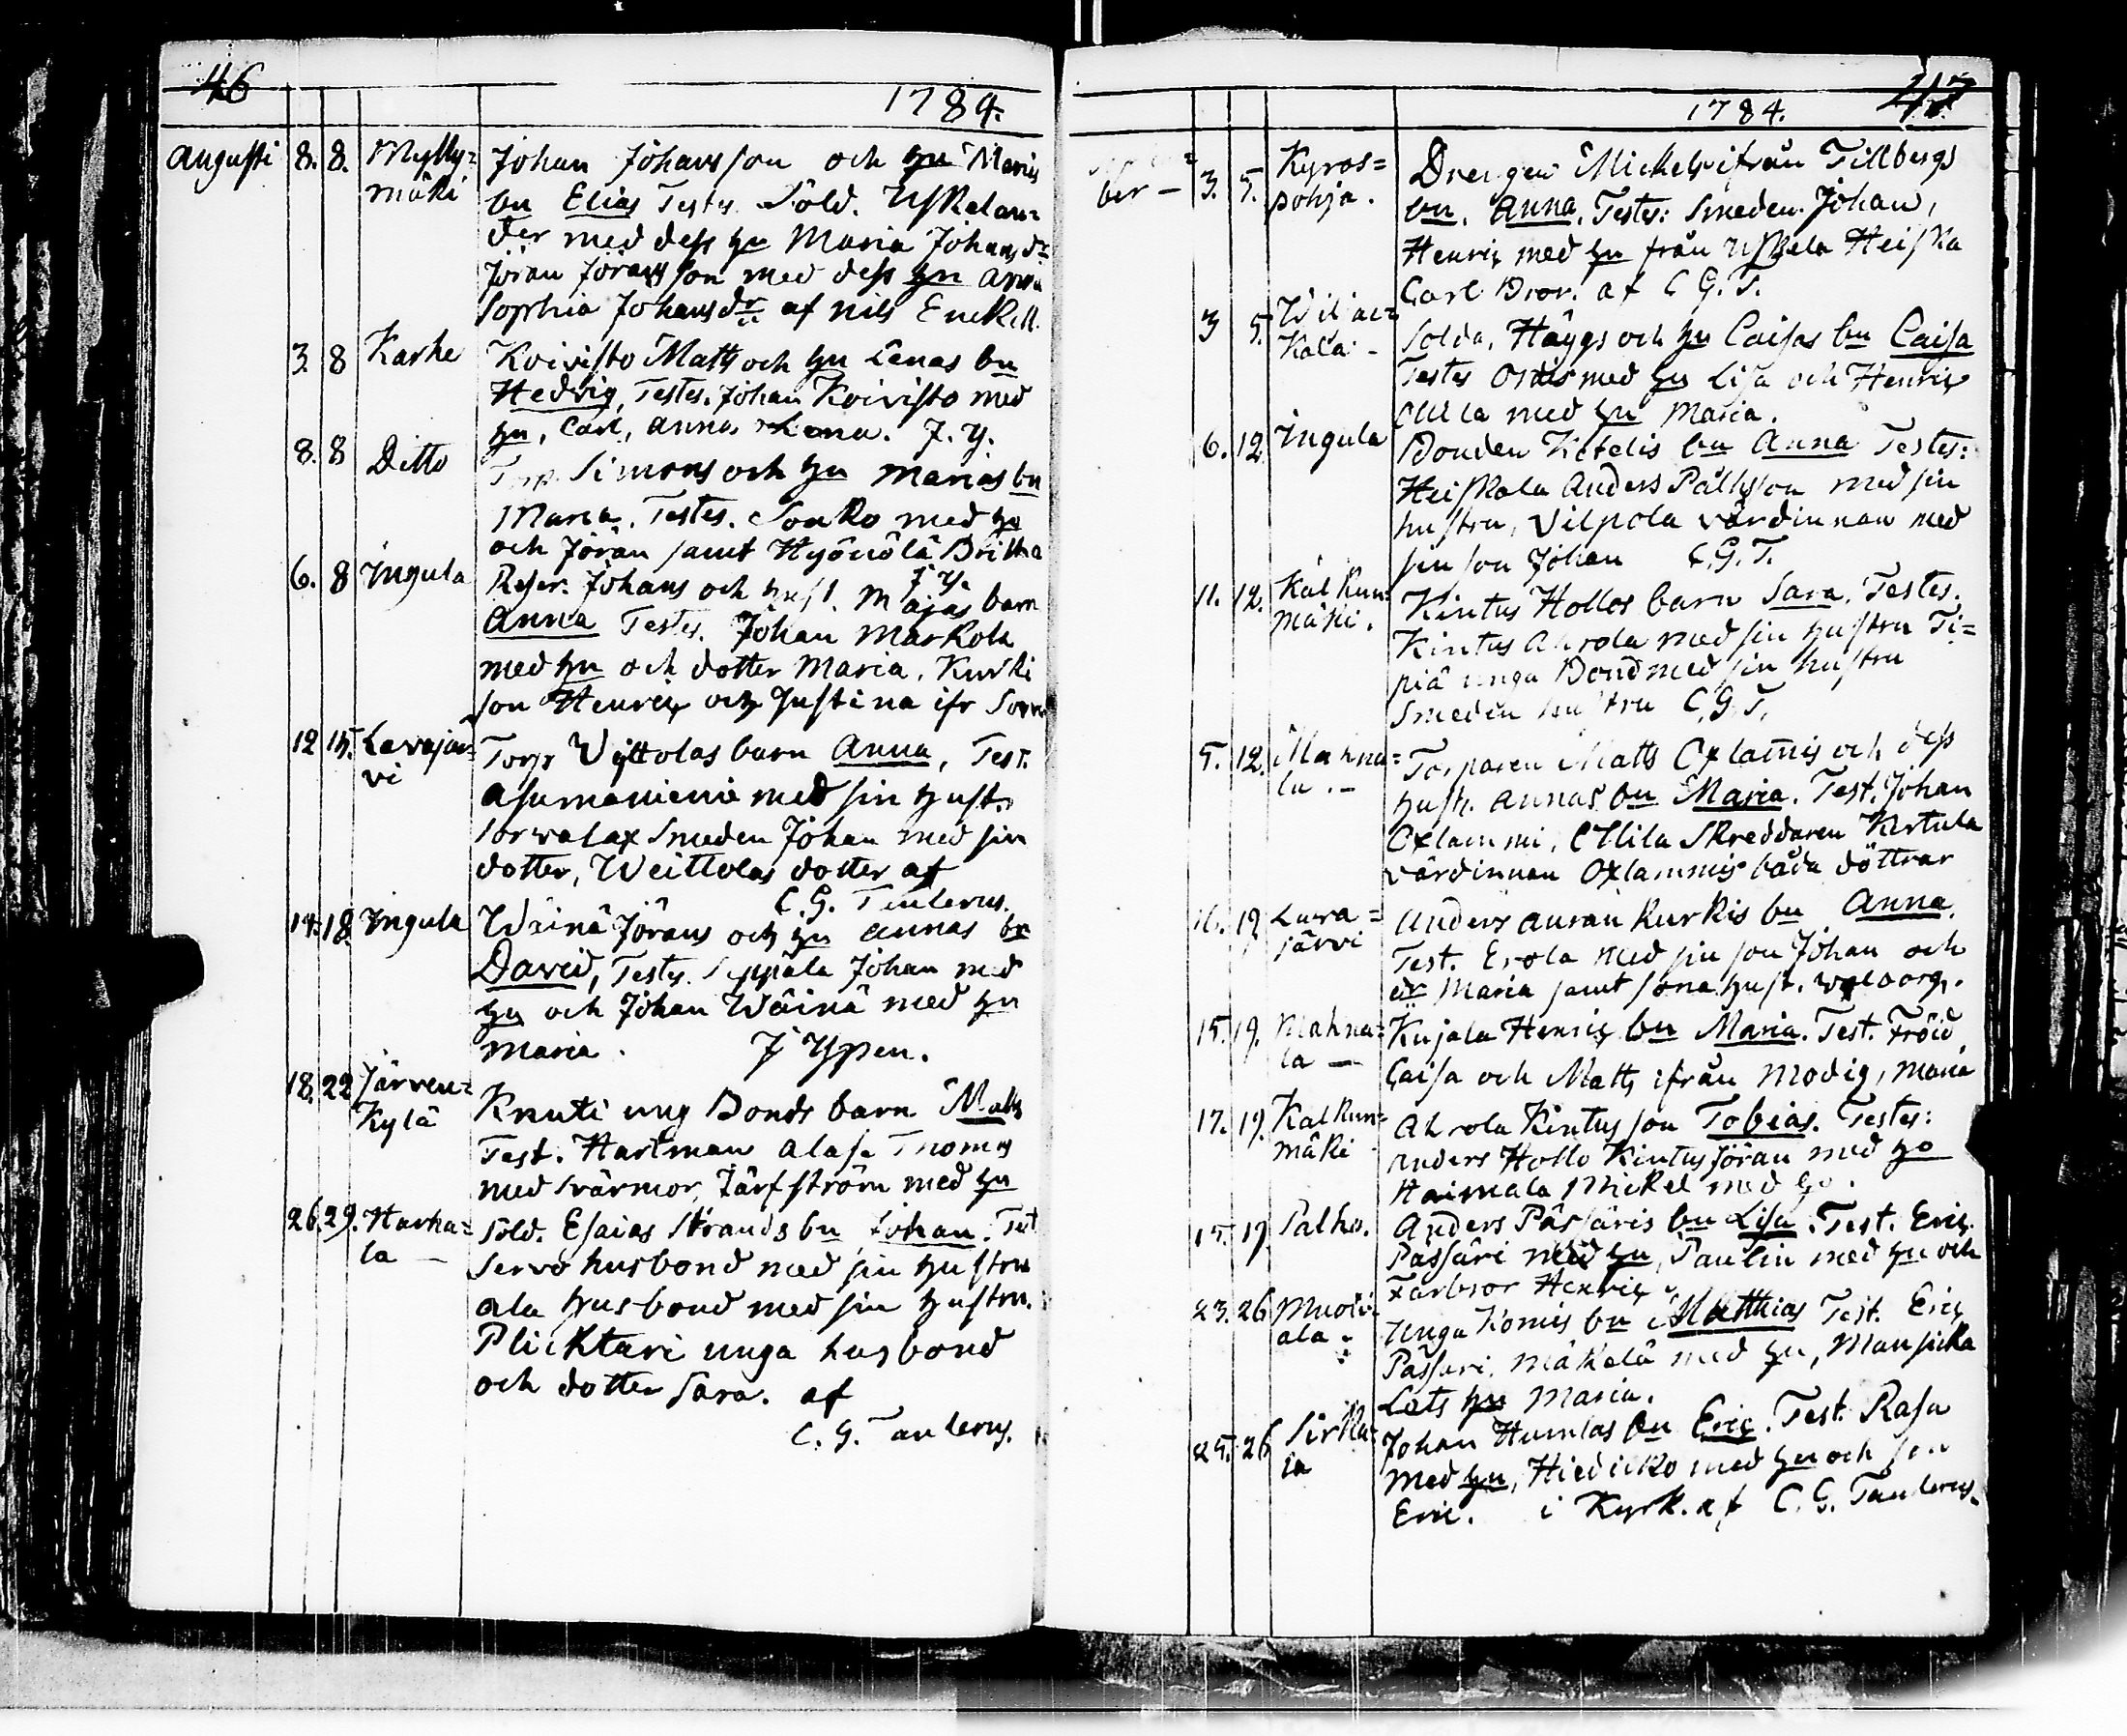 46
1784.
Augusti 8. 8. Mylly=
mäki
Johan Johansson och hu Marias
bn Elias Testes Sold. Uskelan=
der med dess hu Maria Johansdr
Jöran Jöransson med dess hu Anna
Sophia Johansdr af Nils Enckell.
3. 8 Karhe
Koivisto Matts och hu Lenas bn
Hedvig, Testes. Johan Koivisto med
hu, Carl, Annas Lena. J. Y.
8. 8 Ditto
Torp. Simons och hu Marias bn
Maria. Testes. Souko med hu
och Jöran samt Hyönölä Britha
J Y.
6. 8 Yngula
Reser. Johans och hust. Majas barn
Anna Testes. Johan Markola
med hu och dotter Maria. Kurki
son Henric och Justina ifr
12 15. Lavajär=
vi
Torp Wyttolas barn Anna, Test.
Asumaniemi med sin hust.
Sorvalax Smeden Johan med sin
dotter, Weittolas dotter af
C. G. Tanlerus.
14. 18. Yngula
Wäinä Jörans och hu Annas bn
David, Testes. Seppälä Johan med
hu och Johan Wäinä med hu
Maria. J Ypen.
18. 22 Järven=
kylä
Knuti ung Bonds barn Matts
Test. Hartman Alase Thomas
med svärmor, Järfström med hu
26. 29. Harha=
la —
Sold. Esaias Strands bn Johan. Test
Servo husbond med sin hustru
Ala husbond med sin hustru.
Plicktari unga husbond
och dotter Sara. af
C. G. Tanlerus.
1784. 47
ber — 3. 5. Kyros=
pohja.
Drengen Mickels ifrån Tillbergs
bn. Anna. Testes: Smeden Johan,
Henric med hu från Uskela Heiska
Carl Bror. af C G. T.
3 5. Wiljac=
kala —
Solda. Häggs och hu Caisas bn Caisa
Testes med hu Lisa och Henric
Ollila med hu Maria.
6. 12 Yngula
Bonden Ketelis bn Anna Testes:
Heiskala Anders Pålsson med sin
hustru, Vilpola värdinnan med
sin son Johan C. G. T.
11. 12. Kalkun=
mäki.
Kintus Hollos barn Sara. Testes.
Kintus Ahrola med sin hustru Ti=
piä unga Bond med sin hustru
Smeden hustru C. G. T.
5. 12. Mahna=
la. —
Torparen Matts Oxlamis och dess
hust. Annas bn Maria. Test. Johan
Oxlammi, Ollila Skreddaren Kertula
värdinnan Oxlammis båda döttrar
16. 19. Lava=
järvi
Anders Auran Kurkis bn Anna.
Test. Erola med sin son Johan och
dr Maria samt sona hust. Walborg.
15. 19. Mahna=
la —
Kujala Henric bn Maria. Test. Fröid,
Caisa och Matts ifrån Modig, Maria
17. 19. Kalkun=
mäki
Ahrola Kintus son Tobias. Testes:
Anders Hollo Kintus Jöran med hu
Haimala Mickel med hu.
15. 19 Palko.
Anders Pässäris bn Lisa. Test. Eric
Passäri med hu, Paulin med hu och
Farbror Henric
23. 26 Muoti=
ala
Unga Komis bn Matthias Test. Eric
Pässäri, Mäkelä med hu, Mansicka
Lots hu Maria.
25. 26 Sirku=
la
Johan Humlas bn Eric. Test. Rasa
med hu, Hiedicko med hu och son
Eric. i Kyrk. af C. G. Tanlerus.